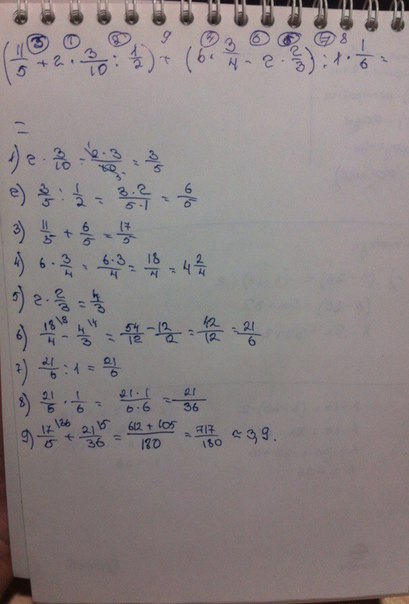 ③ ① ② 9 ④ ⑤ ⑥ ⑦ 8
(11/5 + 2 · 3/10 : 1/2) + (6 · 3/4 - 2 · 2/3) : 1 · 1/6 =
=
1) 2 · 3/10 = 2·3/10 = 3/5
2) 3/5 : 1/2 = 3·2/5·1 = 6/5
3) 11/5 + 6/5 = 17/5
4) 6 · 3/4 = 6·3/4 = 18/4 = 4 2/4
5) 2 · 2/3 = 4/3
6) 18/4 \3 - 4/3 \4 = 54/12 - 12/12 = 42/12 = 21/6
7) 21/6 : 1 = 21/6
8) 21/6 · 1/6 = 21·1/6·6 = 21/36
9) 17/5 \36 + 21/36 \5 = 612+105/180 = 717/180 ≈ 3,9.